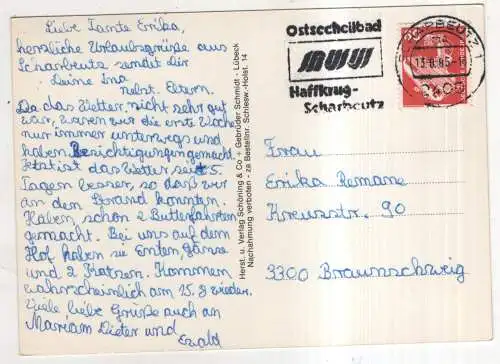 Liebe Tante Erika,
herzliche Urlaubsgrüße aus
Scharbeutz sendet dir
Deine Ina
nebst. Eltern.
Da das Wetter, nicht sehr gut
war, waren wir die erste Woche
nur immer unterwegs und
haben Besichtigungen gemacht.
Jetzt ist das Wetter seit 5.
Tagen besser, so daß wir
an den Strand konnten.
Haben schon 2 Butterfahrten
gemacht. Bei uns auf dem
Hof haben sie Enten, Gänse
und 2 Katzen. Kommen
wahrscheinlich am 15.8 wieder.
Viele liebe Grüße auch an
Mariam Dieter und
Ewald
Herst. u. Verlag Schöning & Co + Gebrüder Schmidt - Lübeck
Nachahmung verboten - za Bestellnr. Schlesw.-Holst. 14
Ostseeheilbad
Haffkrug-
Scharbeutz
Frau
Erika Remane
Kreuzstr. 90
3300 Braunschweig